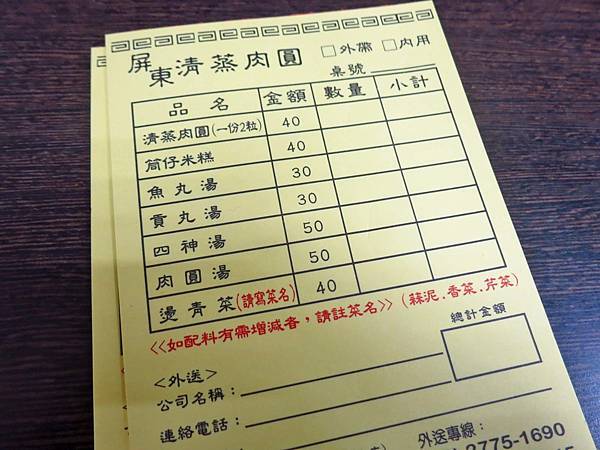 屏東清蒸肉圓 □外帶 □內用
桌號
品名 金額 數量 小計
清蒸肉圓(一份2粒) 40
筒仔米糕 40
魚丸湯 30
貢丸湯 30
四神湯 50
肉圓湯 50
燙青菜(請寫菜名) 40
<<如配料有需增減者，請註菜名>> (蒜泥.香菜.芹菜)
總計金額
<外送>
公司名稱：
連絡電話：
外送專線：
2775-1690